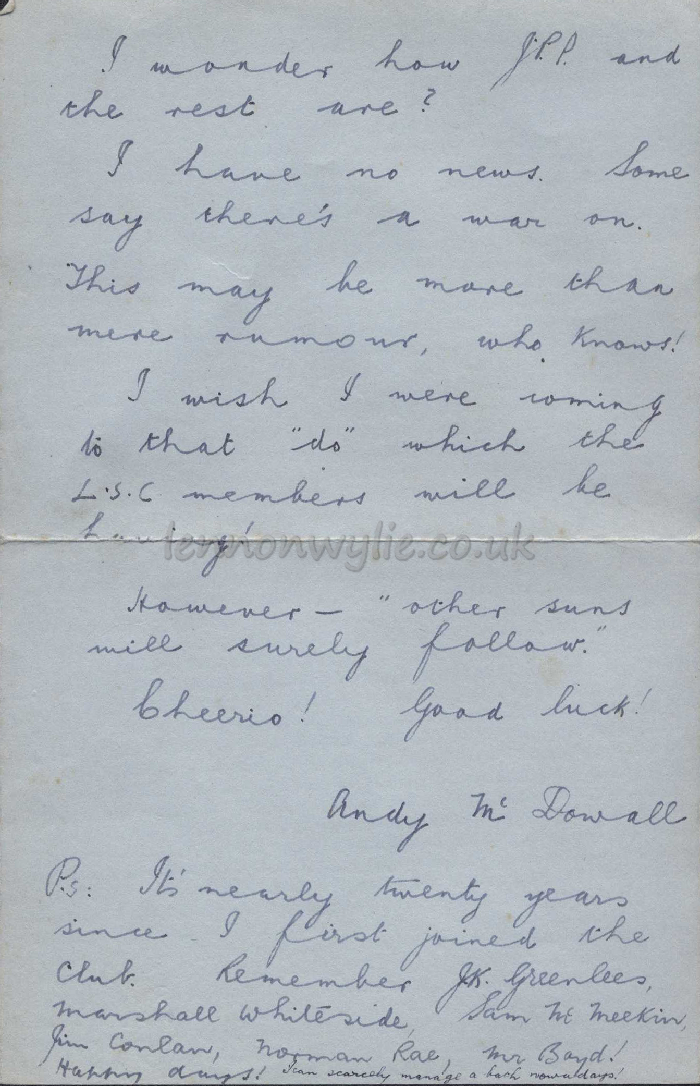 I wonder how J.P.P. and
the rest are?
I have no news. Some
say there's a war on.
This may be more than
mere rumour, who knows!
I wish I were coming
to that "do" which the
L.S.C members will be
having!
lennonwylie.co.uk
However – "other suns
will surely follow."
Cheerio! Good luck!
Andy Mc Dowall
P.s: It's nearly twenty years
since I first joined the
Club. Remember J.K. Greenlees,
Marshall Whiteside, Sam Mc Meekin,
Jim Conlan, Norman Rae, Mr Boyd!
Happy days! I can scarcely manage a bath nowadays!